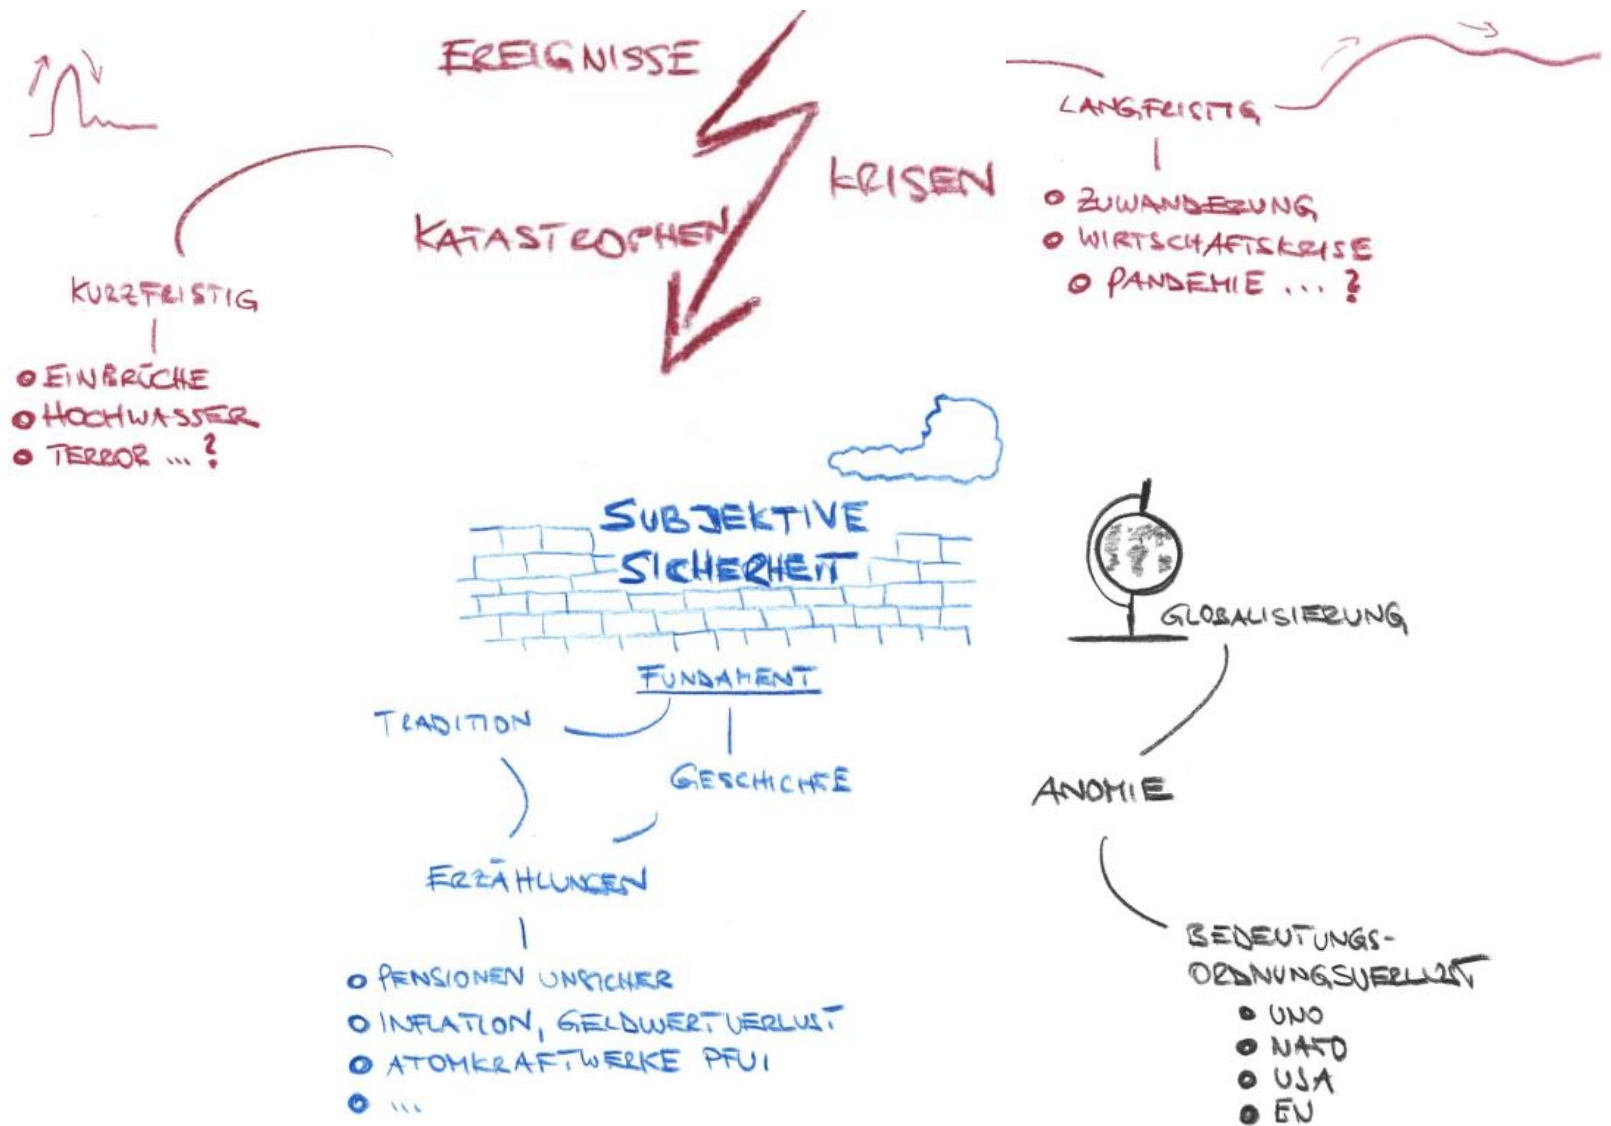 EREIGNISSE
KRISEN
KATASTROPHEN
KURZFRISTIG
EINBRÜCHE
HOCHWASSER
TERROR ... ?
LANGFRISTIG
ZUWANDERUNG
WIRTSCHAFTSKRISE
PANDEMIE ... ?
SUBJEKTIVE
SICHERHEIT
FUNDAMENT
TRADITION
GESCHICHTE
ERZÄHLUNGEN
PENSIONEN UNSICHER
INFLATION, GELDWERTVERLUST
ATOMKRAFTWERKE PFUI
...
GLOBALISIERUNG
ANOMIE
BEDEUTUNGS-
ORDNUNGSVERLUST
UNO
NATO
USA
EU